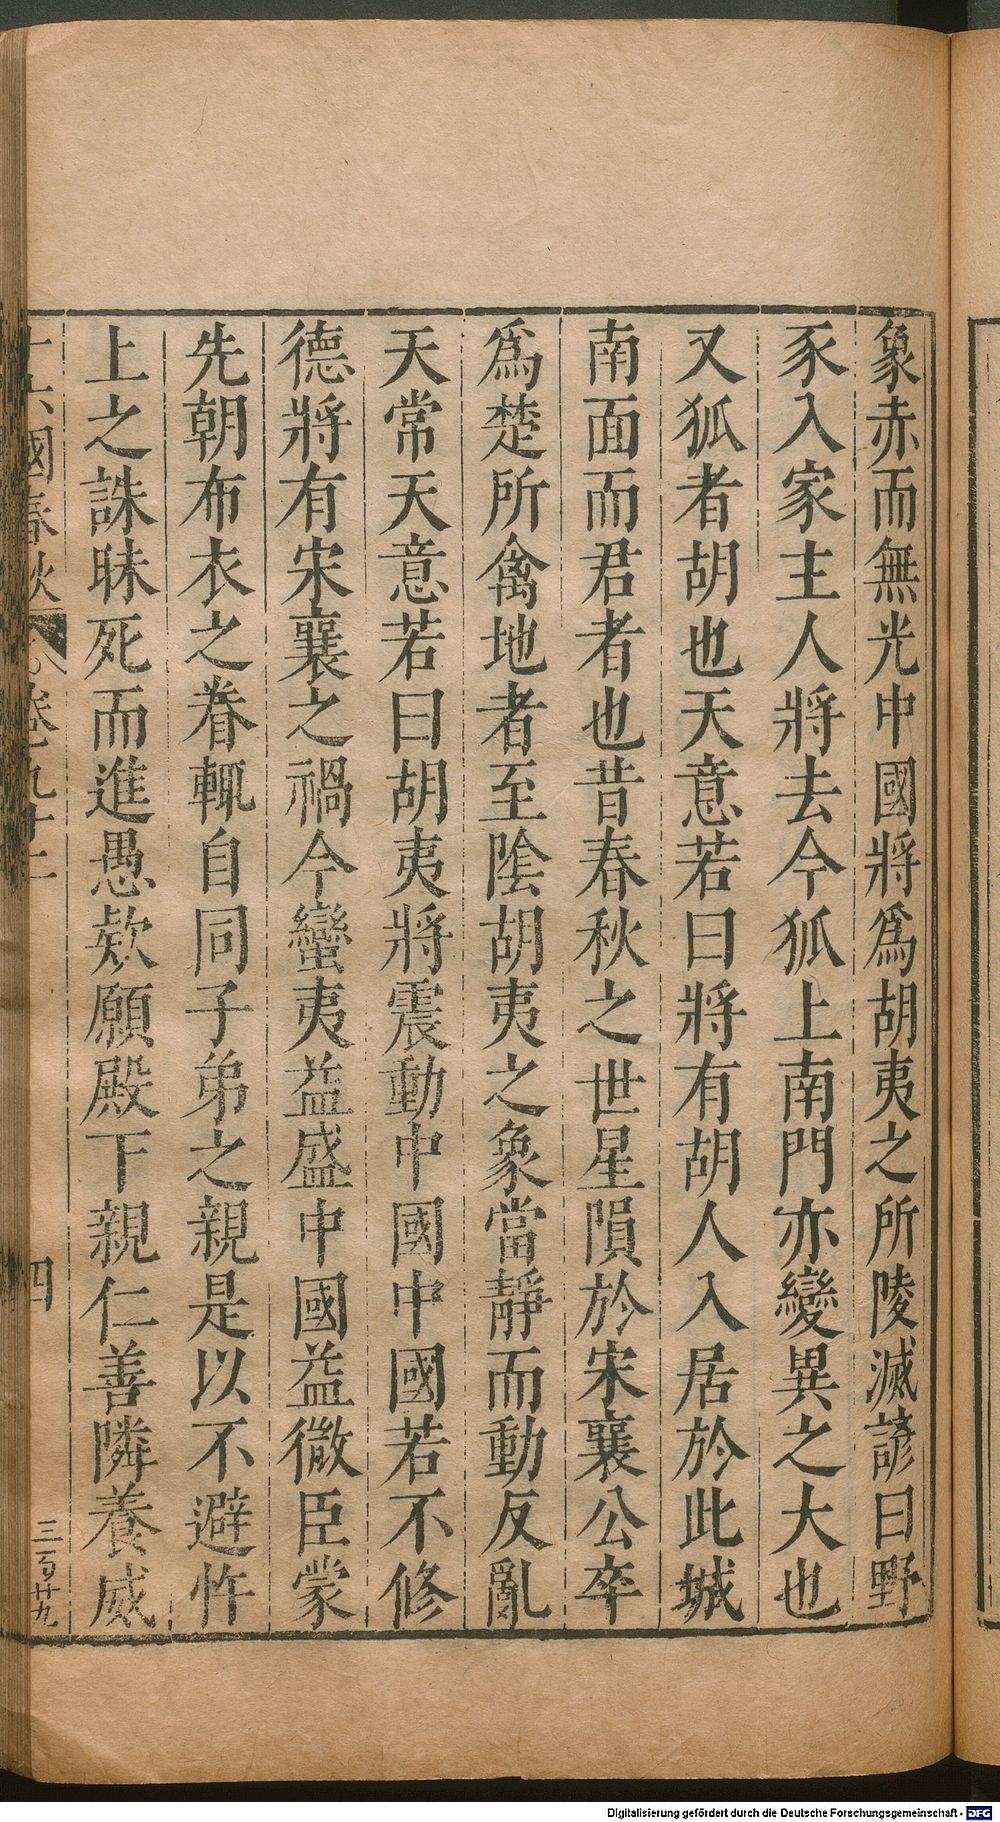 象赤而無光中國將爲胡夷之所陵滅諺曰野
豕入家主人將去今狐上南門亦變異之大也
又狐者胡也天意若曰將有胡人入居於此城
南面而君者也昔春秋之世星隕於宋襄公卒
爲楚所禽地者至陰胡夷之象當靜而動反亂
天常天意若曰胡夷將震動中國中國若不修
德將有宋襄之禍今蠻夷益盛中國益微臣蒙
先朝布衣之眷輒自同子弟之親是以不避忤
上之誅昧死而進愚欵願殿下親仁善隣養威
國春秋 卷九十二 四 三百廿九
Digitalisierung gefördert durch die Deutsche Forschungsgemeinschaft - DFG